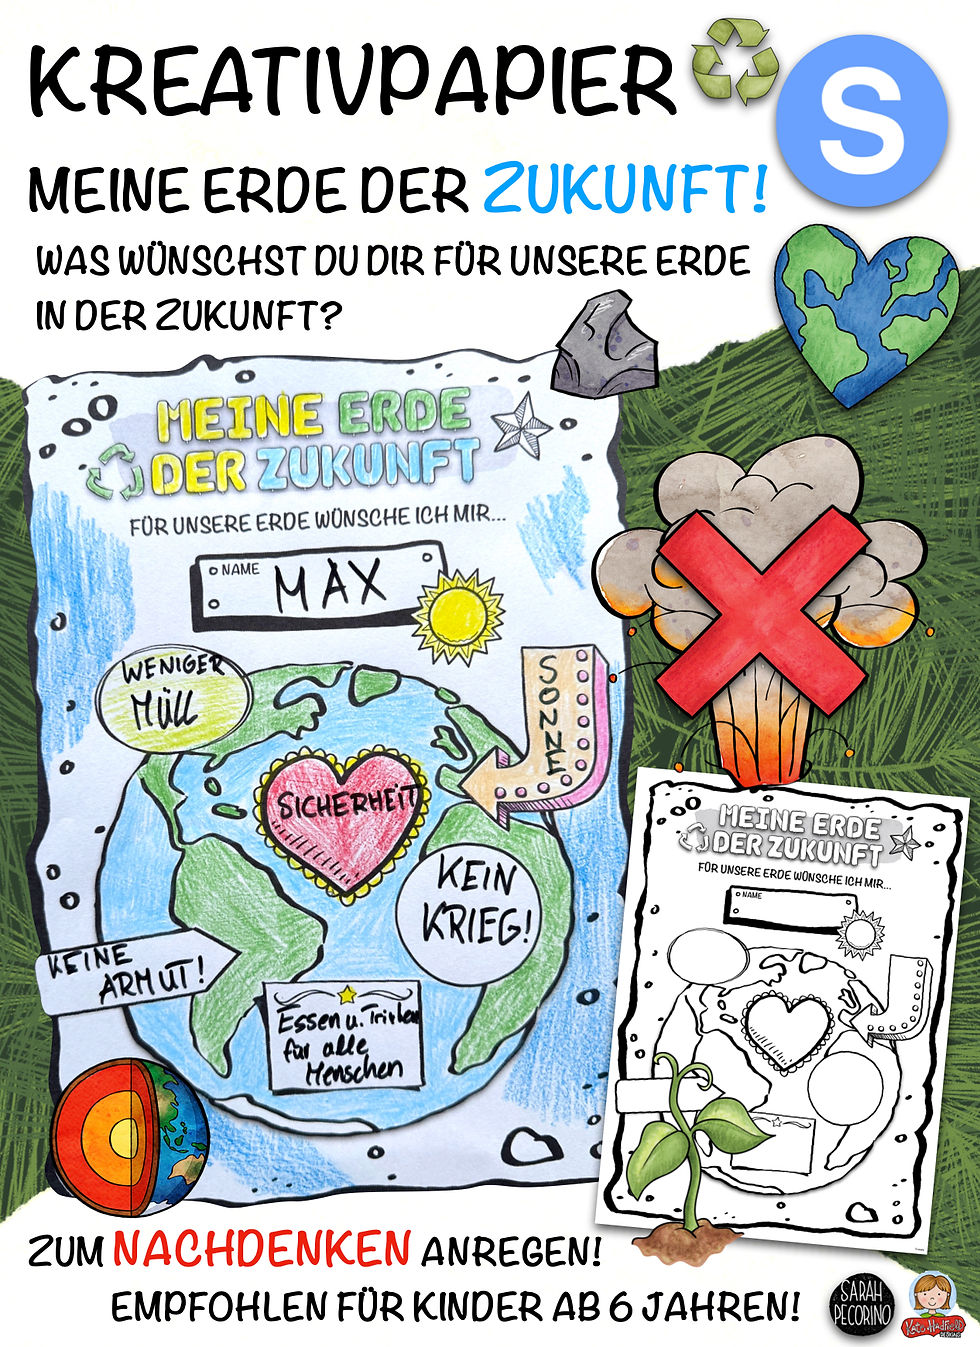 KREATIVPAPIER
S
MEINE ERDE DER ZUKUNFT!
WAS WÜNSCHST DU DIR FÜR UNSERE ERDE
IN DER ZUKUNFT?
MEINE ERDE
DER ZUKUNFT
FÜR UNSERE ERDE WÜNSCHE ICH MIR...
NAME MAX
WENIGER
MÜLL
SONNE
SICHERHEIT
KEIN
KRIEG!
KEINE
ARMUT!
Essen u. Trinken
für alle
Menschen
MEINE ERDE
DER ZUKUNFT
FÜR UNSERE ERDE WÜNSCHE ICH MIR...
NAME
ZUM NACHDENKEN ANREGEN!
EMPFOHLEN FÜR KINDER AB 6 JAHREN!
SARAH
PECORINO
Kate Hadfield
DESIGNS